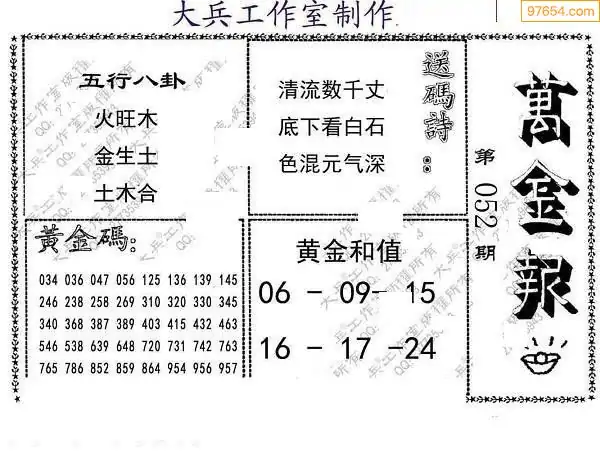 大兵工作室制作
97654.com
五行八卦
火旺木
金生土
土木合
清流数千丈
底下看白石
色混元气深
送碼詩：
萬金報
第052期
黃金碼：
034 036 047 056 125 136 139 145
246 238 258 269 310 320 330 345
340 368 387 389 403 415 432 463
546 538 639 648 720 731 742 763
765 786 852 859 864 954 956 957
黄金和值
06 - 09 - 15
16 - 17 - 24